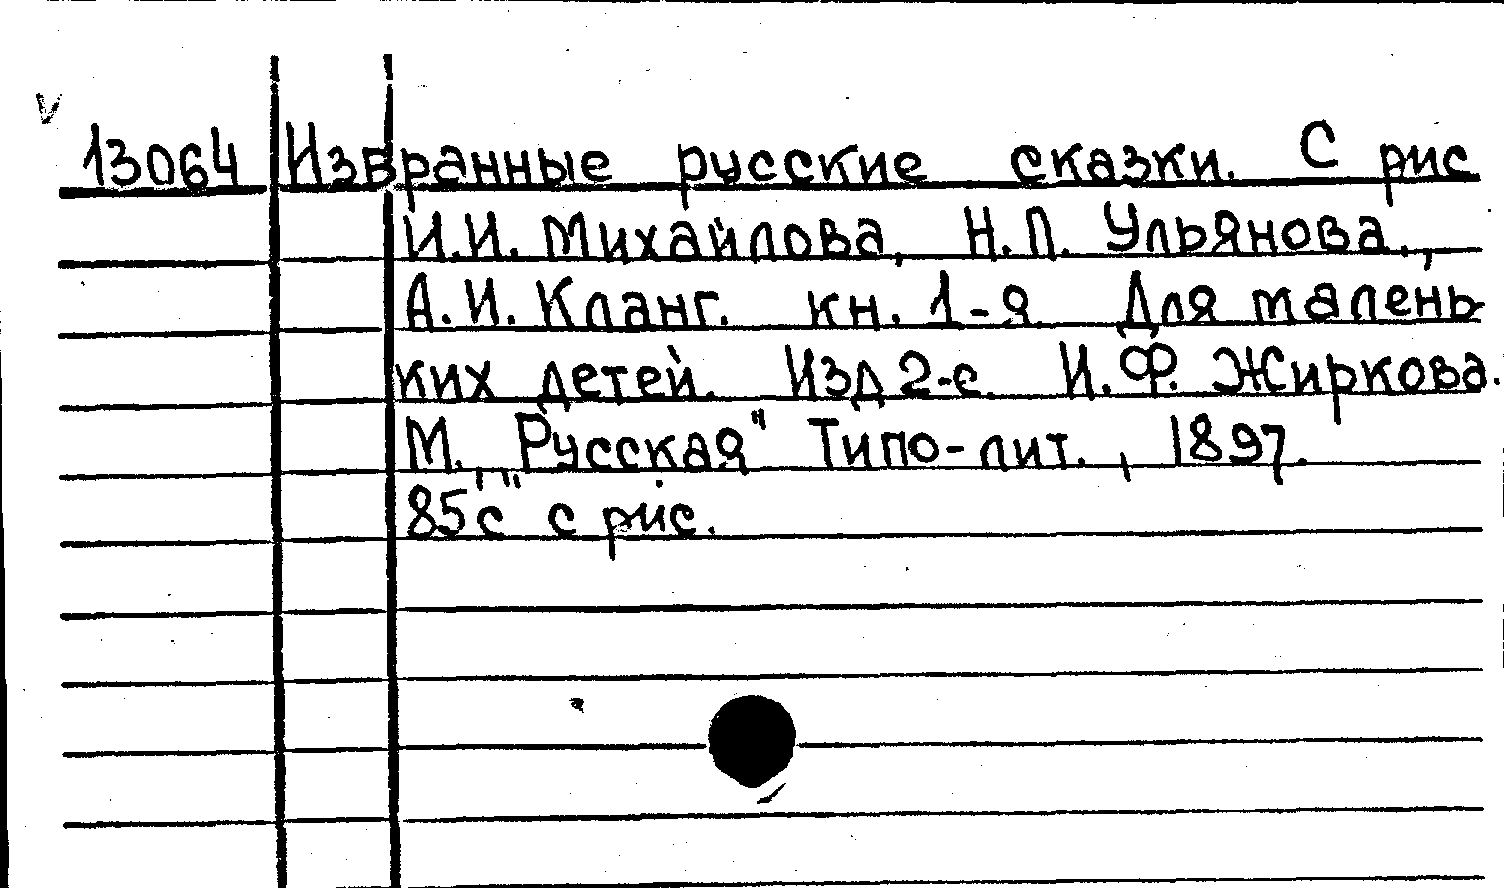 13064 Избранные русские сказки. С рис
И.И. Михайлова, Н.П. Ульянова.,
А.И. Кланг. кн. 1-я Для малень-
ких детей. Изд 2-е. И.Ф. Жиркова.
М. „Русская" Типо-лит., 1897.
85с" с рис.